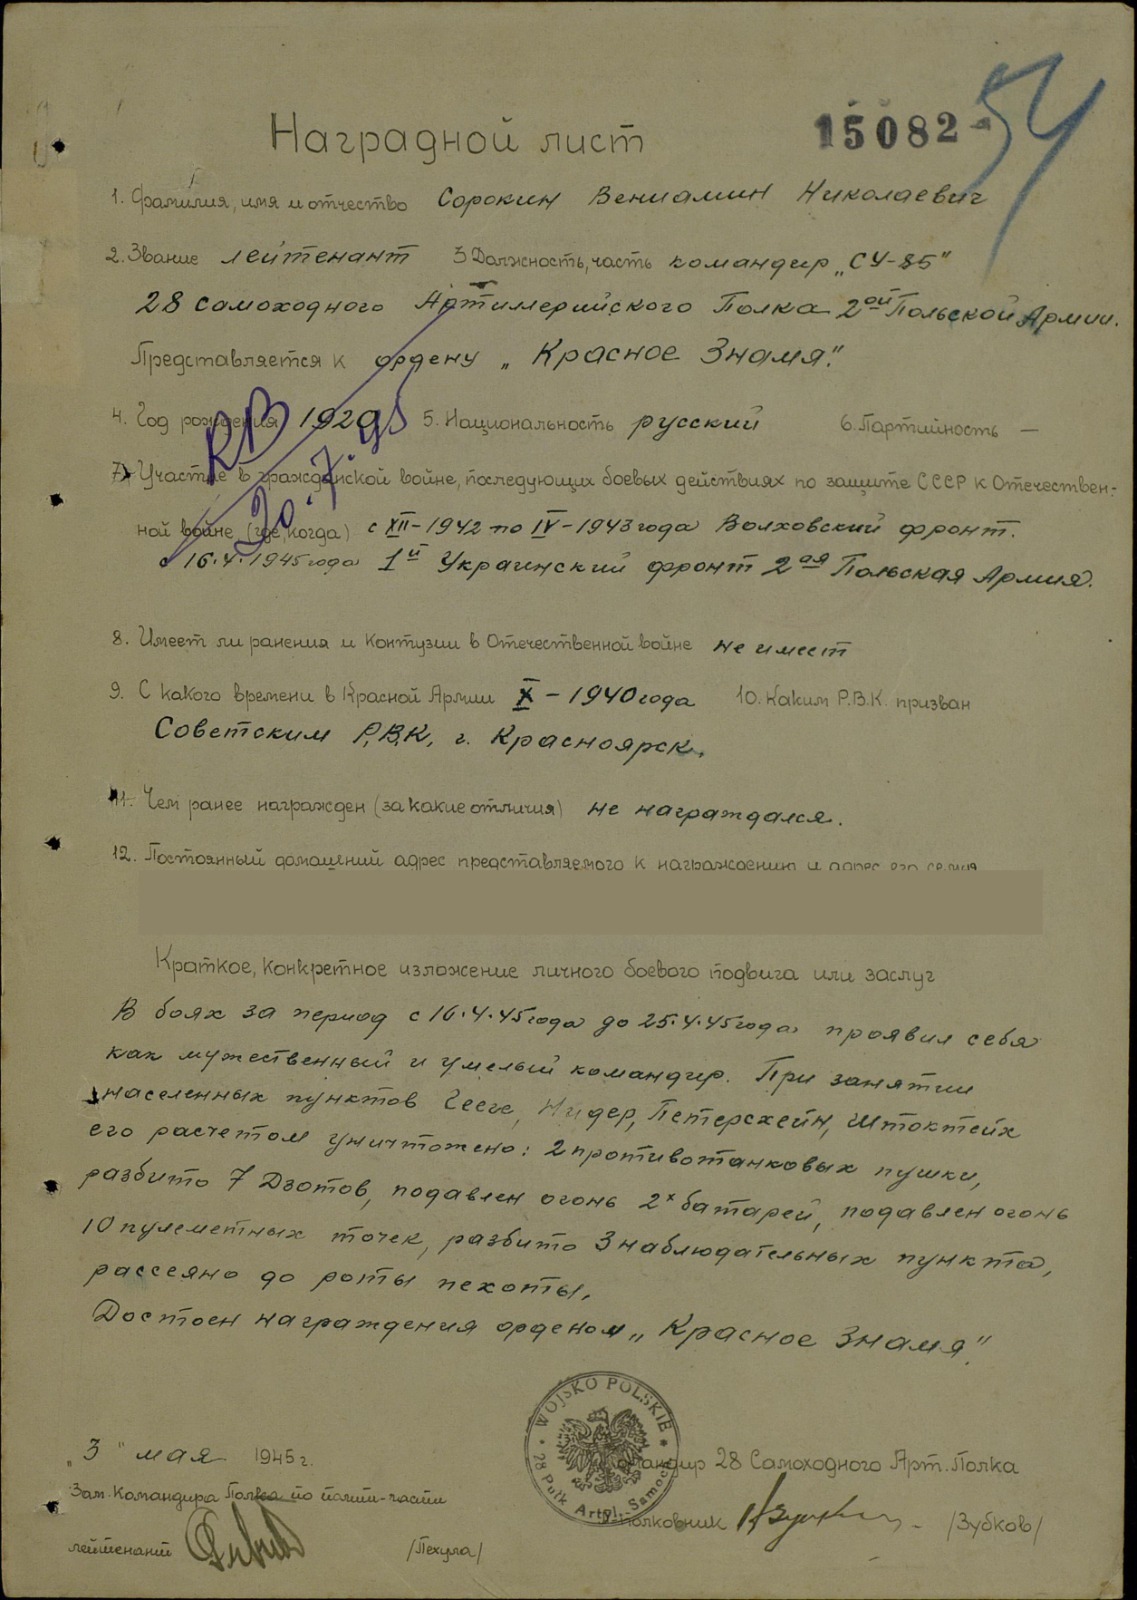 15082
54
Наградной лист
1. Фамилия, имя и отчество Сорокин Вениамин Николаевич
2. Звание лейтенант 3 Должность, часть командир „СУ-85"
28 самоходного Артиллерийского Полка 2ой Польской Армии.
Представляется к ордену „Красное Знамя".
4. Год рождения 1920 5. Национальность русский 6. Партийность —
7. Участие в гражданской войне, последующих боевых действиях по защите СССР и Отечествен-
ной войне (где, когда) с XII-1942 по IV-1943 года Волховский фронт.
с 16.4.1945 года 1й Украинский фронт 2ая Польская Армия.
8. Имеет ли ранения и контузии в Отечественной войне не имеет
9. С какого времени в Красной Армии X-1940 года 10. Каким Р.В.К. призван
Советским Р.В.К. г. Красноярск.
11. Чем ранее награжден (за какие отличия) не награждался.
12. Постоянный домашний адрес представляемого к награждению и адрес его семьи
Краткое, конкретное изложение личного боевого подвига или заслуг
В боях за период с 16.4.45 года до 25.4.45 года проявил себя
как мужественный и умелый командир. При занятии
населенных пунктов Гееге, Нидер, Петерсхейн, Штоктейх
его расчетом уничтожено: 2 противотанковых пушки,
разбито 7 Дзотов, подавлен огонь 2х батарей, подавлен огонь
10 пулеметных точек, разбито 3 наблюдательных пункта,
рассеяно до роты пехоты.
Достоен награждения орденом „Красное Знамя".
WOJSKO POLSKIE
28 Pułk Artyl. Samoch.
„3" мая 1945 г.
Командир 28 Самоходного Арт. Полка
Зам. Командира Полка по полит-части
Полковник /Зубков/
лейтенант /Пехула/